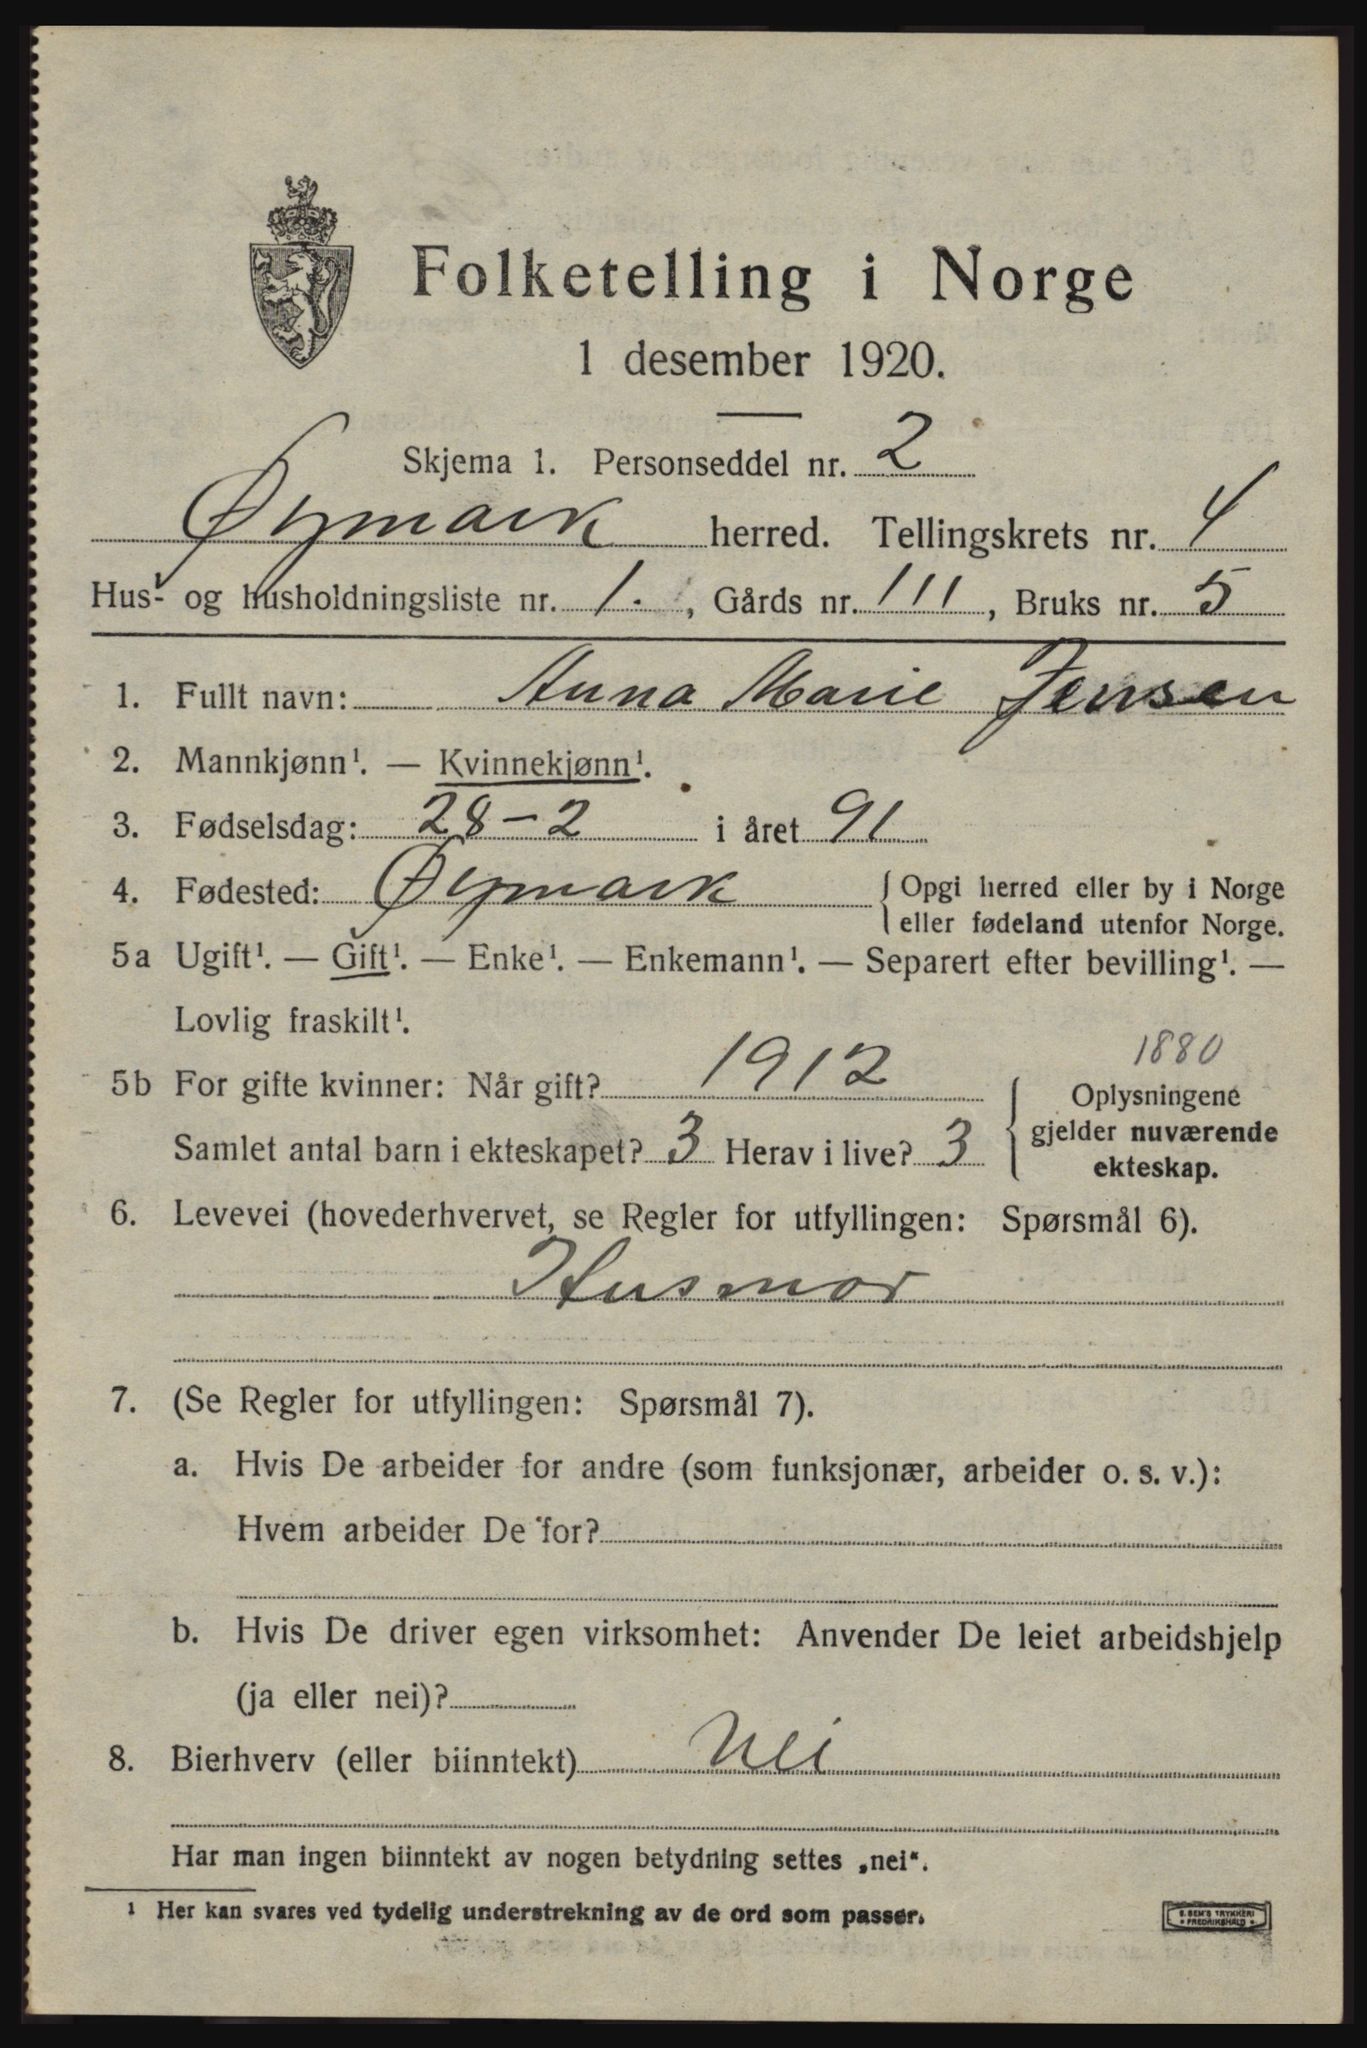 Folketelling i Norge
1 desember 1920.
Skjema 1. Personseddel nr. 2
Øymark herred. Tellingskrets nr. 4
Hus- og husholdningsliste nr. 1. , Gårds nr. 111, Bruks nr. 5
1. Fullt navn: Anna Marie Jensen
2. Mannkjønn¹. — Kvinnekjønn¹.
3. Fødselsdag: 28-2 i året 91
4. Fødested: Øymark { Opgi herred eller by i Norge
eller fødeland utenfor Norge.
5a Ugift¹. — Gift¹. — Enke¹. — Enkemann¹. — Separert efter bevilling¹. —
Lovlig fraskilt¹.
1880
5b For gifte kvinner: Når gift? 1912 { Oplysningene
gjelder nuværende
ekteskap.
Samlet antal barn i ekteskapet? 3 Herav i live? 3
6. Levevei (hovederhvervet, se Regler for utfyllingen: Spørsmål 6).
Husmor
7. (Se Regler for utfyllingen: Spørsmål 7).
a. Hvis De arbeider for andre (som funksjonær, arbeider o. s. v.):
Hvem arbeider De for?
b. Hvis De driver egen virksomhet: Anvender De leiet arbeidshjelp
(ja eller nei)?
8. Bierhverv (eller biinntekt) Nei
Har man ingen biinntekt av nogen betydning settes „nei“.
¹ Her kan svares ved tydelig understrekning av de ord som passer.
E. SEM'S TRYKKERI
FREDRIKSHALD